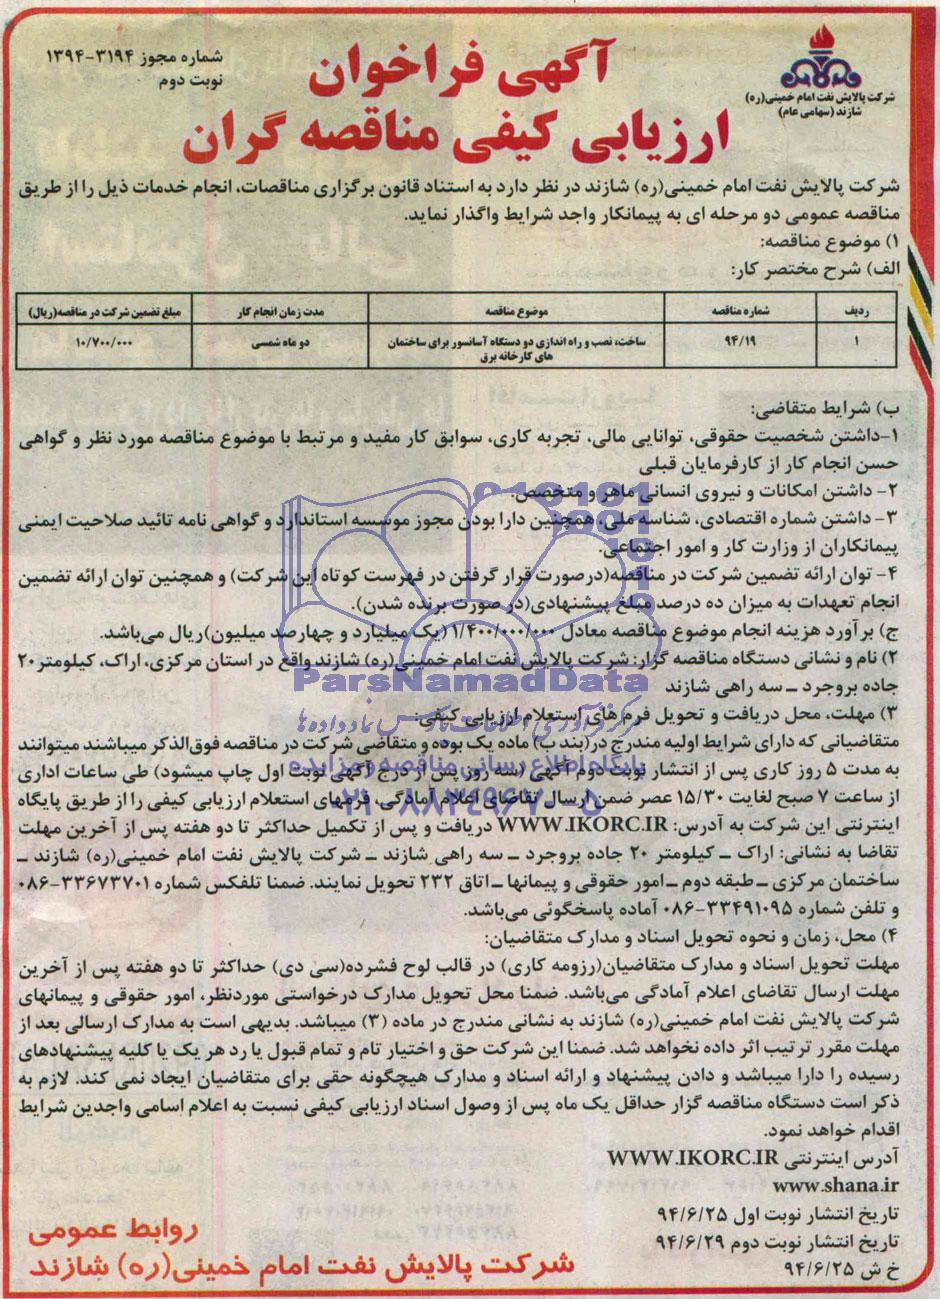 شماره مجوز ۳۱۹۴-۱۳۹۴
نوبت دوم
آگهی فراخوان
ارزیابی کیفی مناقصه گران
شرکت پالایش نفت امام خمینی(ره)
شازند (سهامی عام)
شرکت پالایش نفت امام خمینی(ره) شازند در نظر دارد به استناد قانون برگزاری مناقصات، انجام خدمات ذیل را از طریق
مناقصه عمومی دو مرحله ای به پیمانکار واجد شرایط واگذار نماید.
۱) موضوع مناقصه:
الف) شرح مختصر کار:
ردیف شماره مناقصه موضوع مناقصه مدت زمان انجام کار مبلغ تضمین شرکت در مناقصه(ریال)
۱ ۹۴/۱۹ ساخت، نصب و راه اندازی دو دستگاه آسانسور برای ساختمان دو ماه شمسی ۱۰/۷۰۰/۰۰۰
های کارخانه برق
ب) شرایط متقاضی:
۱-داشتن شخصیت حقوقی، توانایی مالی، تجربه کاری، سوابق کار مفید و مرتبط با موضوع مناقصه مورد نظر و گواهی
حسن انجام کار از کارفرمایان قبلی
۲- داشتن امکانات و نیروی انسانی ماهر و متخصص.
۳- داشتن شماره اقتصادی، شناسه ملی، همچنین دارا بودن مجوز موسسه استاندارد و گواهی نامه تائید صلاحیت ایمنی
پیمانکاران از وزارت کار و امور اجتماعی.
۴- توان ارائه تضمین شرکت در مناقصه(درصورت قرار گرفتن در فهرست کوتاه این شرکت) و همچنین توان ارائه تضمین
انجام تعهدات به میزان ده درصد مبلغ پیشنهادی(در صورت برنده شدن).
ج) برآورد هزینه انجام موضوع مناقصه معادل ۱/۴۰۰/۰۰۰/۰۰۰ (یک میلیارد و چهارصد میلیون)ریال می‌باشد.
۲) نام و نشانی دستگاه مناقصه گزار: شرکت پالایش نفت امام خمینی(ره) شازند واقع در استان مرکزی، اراک، کیلومتر ۲۰
جاده بروجرد ـ سه راهی شازند
ParsNamadData
۳) مهلت، محل دریافت و تحویل فرم های استعلام ارزیابی کیفی:
مرکز فرآوری اطلاعات پارس نماد داده‌ها
متقاضیانی که دارای شرایط اولیه مندرج در(بند ب) ماده یک بوده و متقاضی شرکت در مناقصه فوق‌الذکر میباشند میتوانند
پایگاه اطلاع رسانی مناقصه و مزایده
به مدت ۵ روز کاری پس از انتشار نوبت دوم آگهی (سه روز پس از درج آگهی نوبت اول چاپ میشود) طی ساعات اداری
از ساعت ۷ صبح لغایت ۱۵/۳۰ عصر ضمن ارسال تقاضای اعلام آمادگی، فرمهای استعلام ارزیابی کیفی را از طریق پایگاه
۰۲۱-۸۸۳۴۹۶۷۰-۵
اینترنتی این شرکت به آدرس: WWW.IKORC.IR دریافت و پس از تکمیل حداکثر تا دو هفته پس از آخرین مهلت
تقاضا به نشانی: اراک ـ کیلومتر ۲۰ جاده بروجرد ـ سه راهی شازند ـ شرکت پالایش نفت امام خمینی(ره) شازند ـ
ساختمان مرکزی ـ طبقه دوم ـ امور حقوقی و پیمانها ـ اتاق ۲۳۲ تحویل نمایند. ضمنا تلفکس شماره ۳۳۶۷۳۷۰۱-۰۸۶
و تلفن شماره ۳۳۴۹۱۰۹۵-۰۸۶ آماده پاسخگوئی می‌باشد.
۴) محل، زمان و نحوه تحویل اسناد و مدارک متقاضیان:
مهلت تحویل اسناد و مدارک متقاضیان(رزومه کاری) در قالب لوح فشرده(سی دی) حداکثر تا دو هفته پس از آخرین
مهلت ارسال تقاضای اعلام آمادگی می‌باشد. ضمنا محل تحویل مدارک درخواستی موردنظر، امور حقوقی و پیمانهای
شرکت پالایش نفت امام خمینی(ره) شازند به نشانی مندرج در ماده (۳) میباشد. بدیهی است به مدارک ارسالی بعد از
مهلت مقرر ترتیب اثر داده نخواهد شد. ضمنا این شرکت حق و اختیار تام و تمام قبول یا رد هر یک یا کلیه پیشنهادهای
رسیده را دارا میباشد و دادن پیشنهاد و ارائه اسناد و مدارک هیچگونه حقی برای متقاضیان ایجاد نمی کند. لازم به
ذکر است دستگاه مناقصه گزار حداقل یک ماه پس از وصول اسناد ارزیابی کیفی نسبت به اعلام اسامی واجدین شرایط
اقدام خواهد نمود.
آدرس اینترنتی WWW.IKORC.IR
www.shana.ir
تاریخ انتشار نوبت اول ۹۴/۶/۲۵
تاریخ انتشار نوبت دوم ۹۴/۶/۲۹
خ ش ۹۴/۶/۲۵
روابط عمومی
شرکت پالایش نفت امام خمینی(ره) شازند